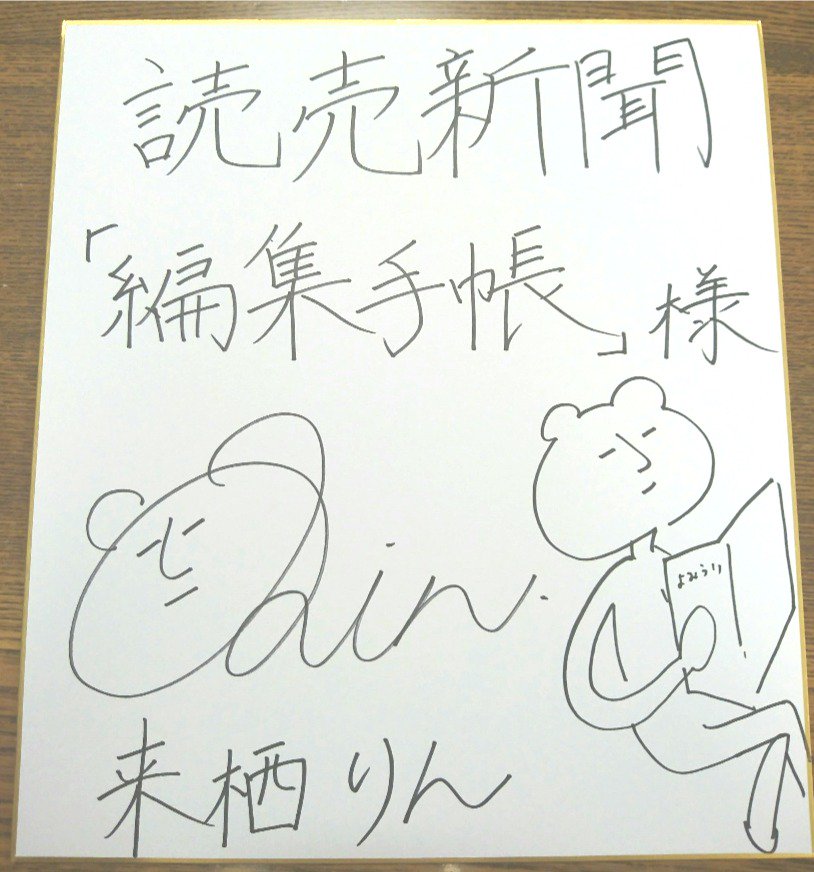 読売新聞
「編集手帳」様
よみうり
Rin.
来栖りん